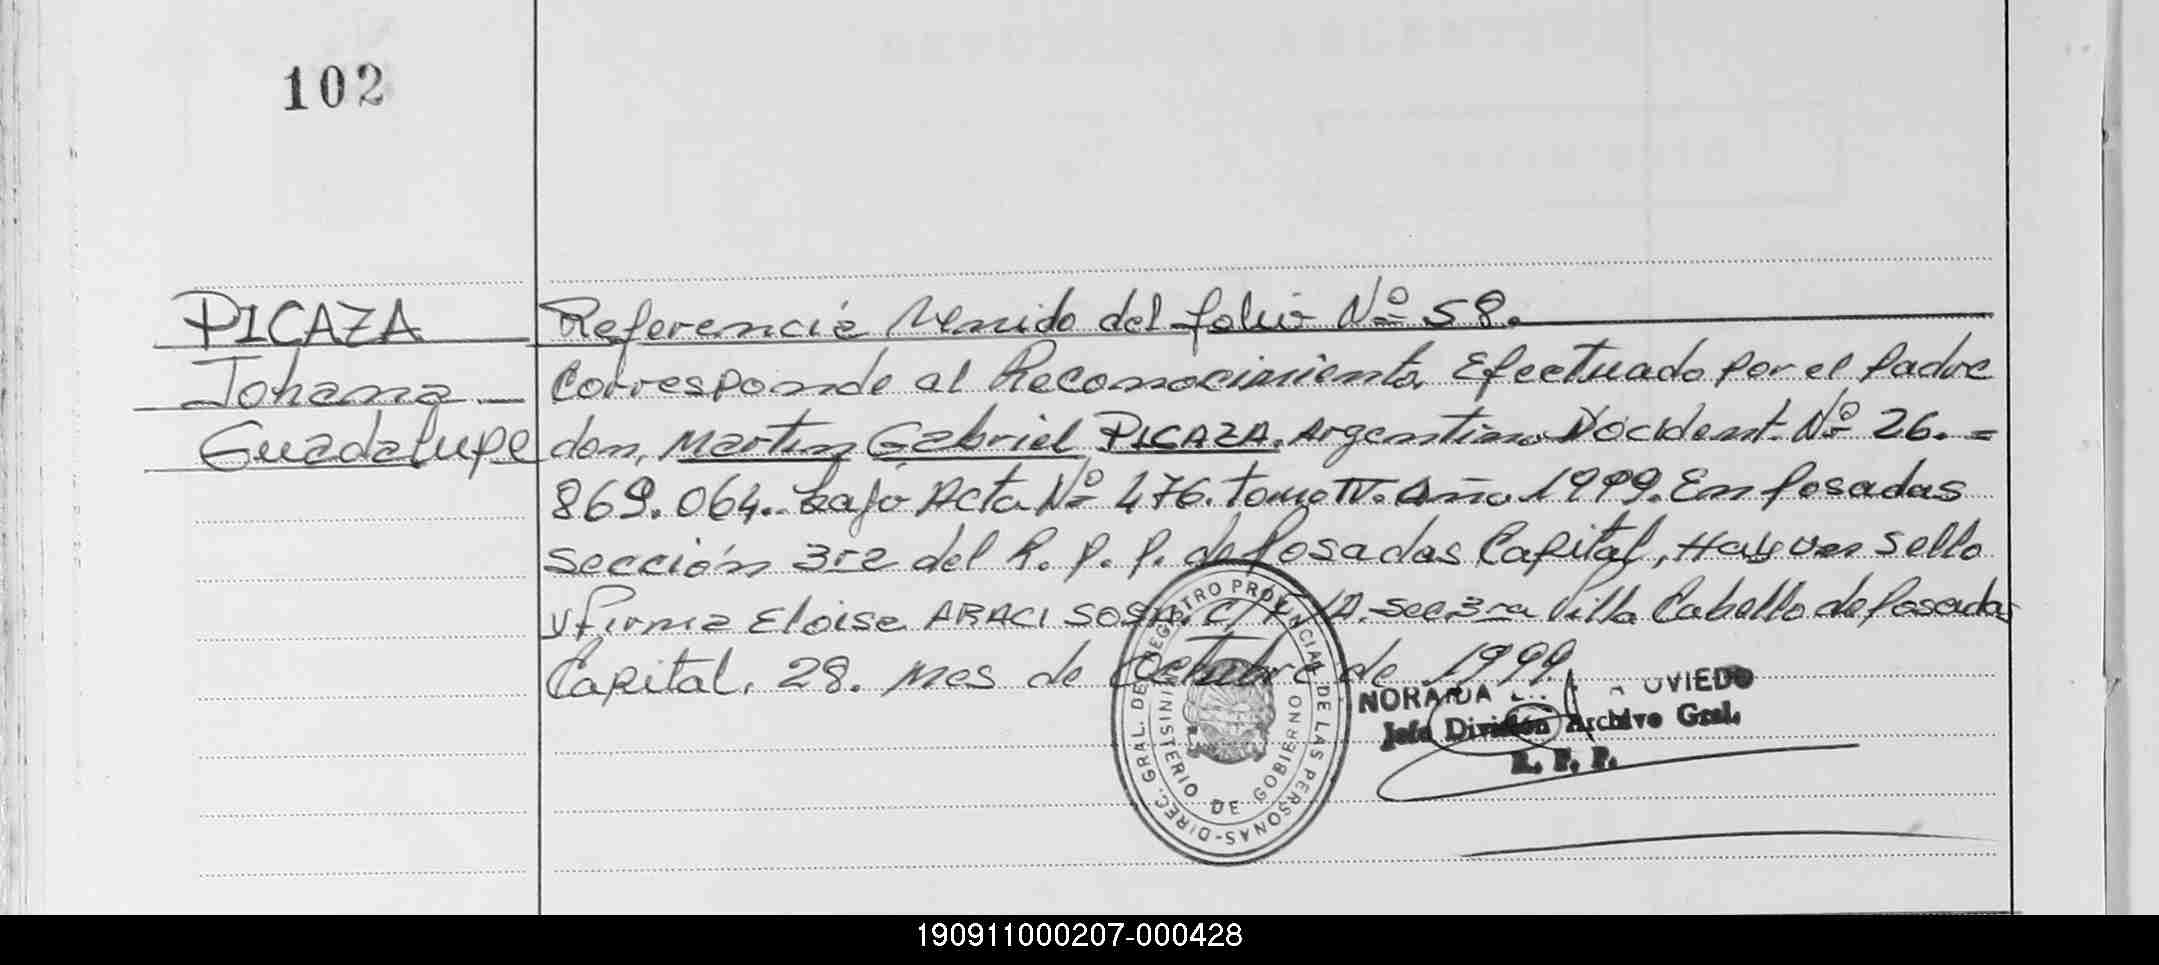 102
PICAZA
Johana
Guadalupe
Referencia Venido del folio Nº 58.
Corresponde al Reconocimiento Efectuado por el Padre
don, Martin Gabriel PICAZA. Argentino Doc. Ident. Nº 26.=
869.064.. bajo Acta Nº 476. tomo IV. Año 1999. En Posadas
sección 3ra del R. P. P. de Posadas Capital, Hay un sello
y firma Eloisa ARACI SOSA. sec 3ra Villa Cabello de Posadas
Capital. 28. Mes de Octubre de 1999.
DIREC. GRAL. DE REGISTRO PROVINCIAL DE LAS PERSONAS-
MINISTERIO DE GOBIERNO
OVIEDO
Jefa División Archivo Gral.
R. P. P.
190911000207-000428